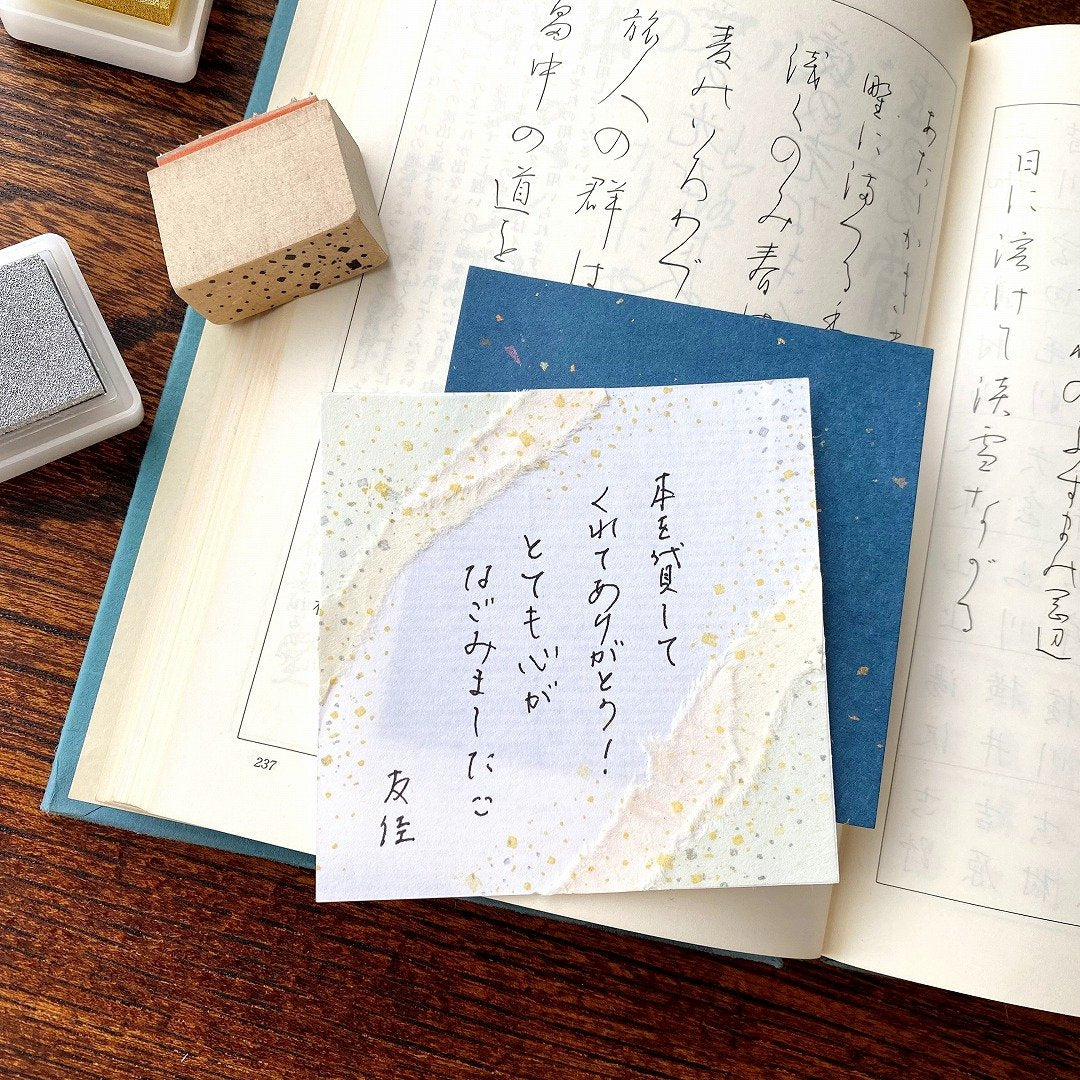 のふすまの岡辺
日に溶けて淡雪ながる
あたゝかき
野に満つる
浅くのみ春は
麦のいろわづ
旅人の群は
畠中の道を
237
本を貸して
くれてありがとう!
とても心が
なごみました
友佳